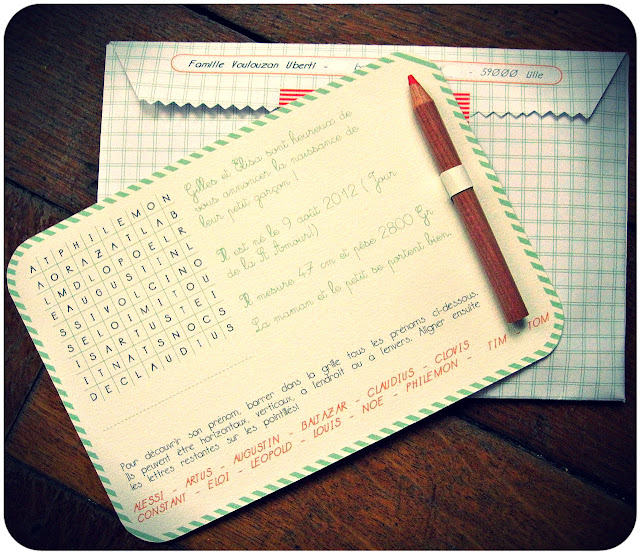 Famille Voulouzan Uberti - - 59000 Lille
Gilles et Elisa sont heureux de
vous annoncer la naissance de
leur petit garçon !
Il est né le 9 août 2012 ( Jour
de la St Amour!)
Il mesure 47 cm et pèse 2800 Gr
La maman et le petit se portent bien.
ATPHILEMON
AORAZATLAB
LMDLOPOELR
EAUGUSTINL
SSIVOLCINO
SELOIMITOU
ISARTUSTEI
ITNATSNOCS
DECLAUDIUS
Pour découvrir son prénom, barrer dans la grille tous les prénoms ci-dessous.
Ils peuvent être horizontaux, verticaux, à l'endroit ou à l'envers. Aligner ensuite
les lettres restantes sur les pointillés!
ALESSI - ARTUS - AUGUSTIN - BALTAZAR - CLAUDIUS - CLOVIS
CONSTANT - ELOI - LEOPOLD - LOUIS - NOE - PHILEMON - TIM - TOM